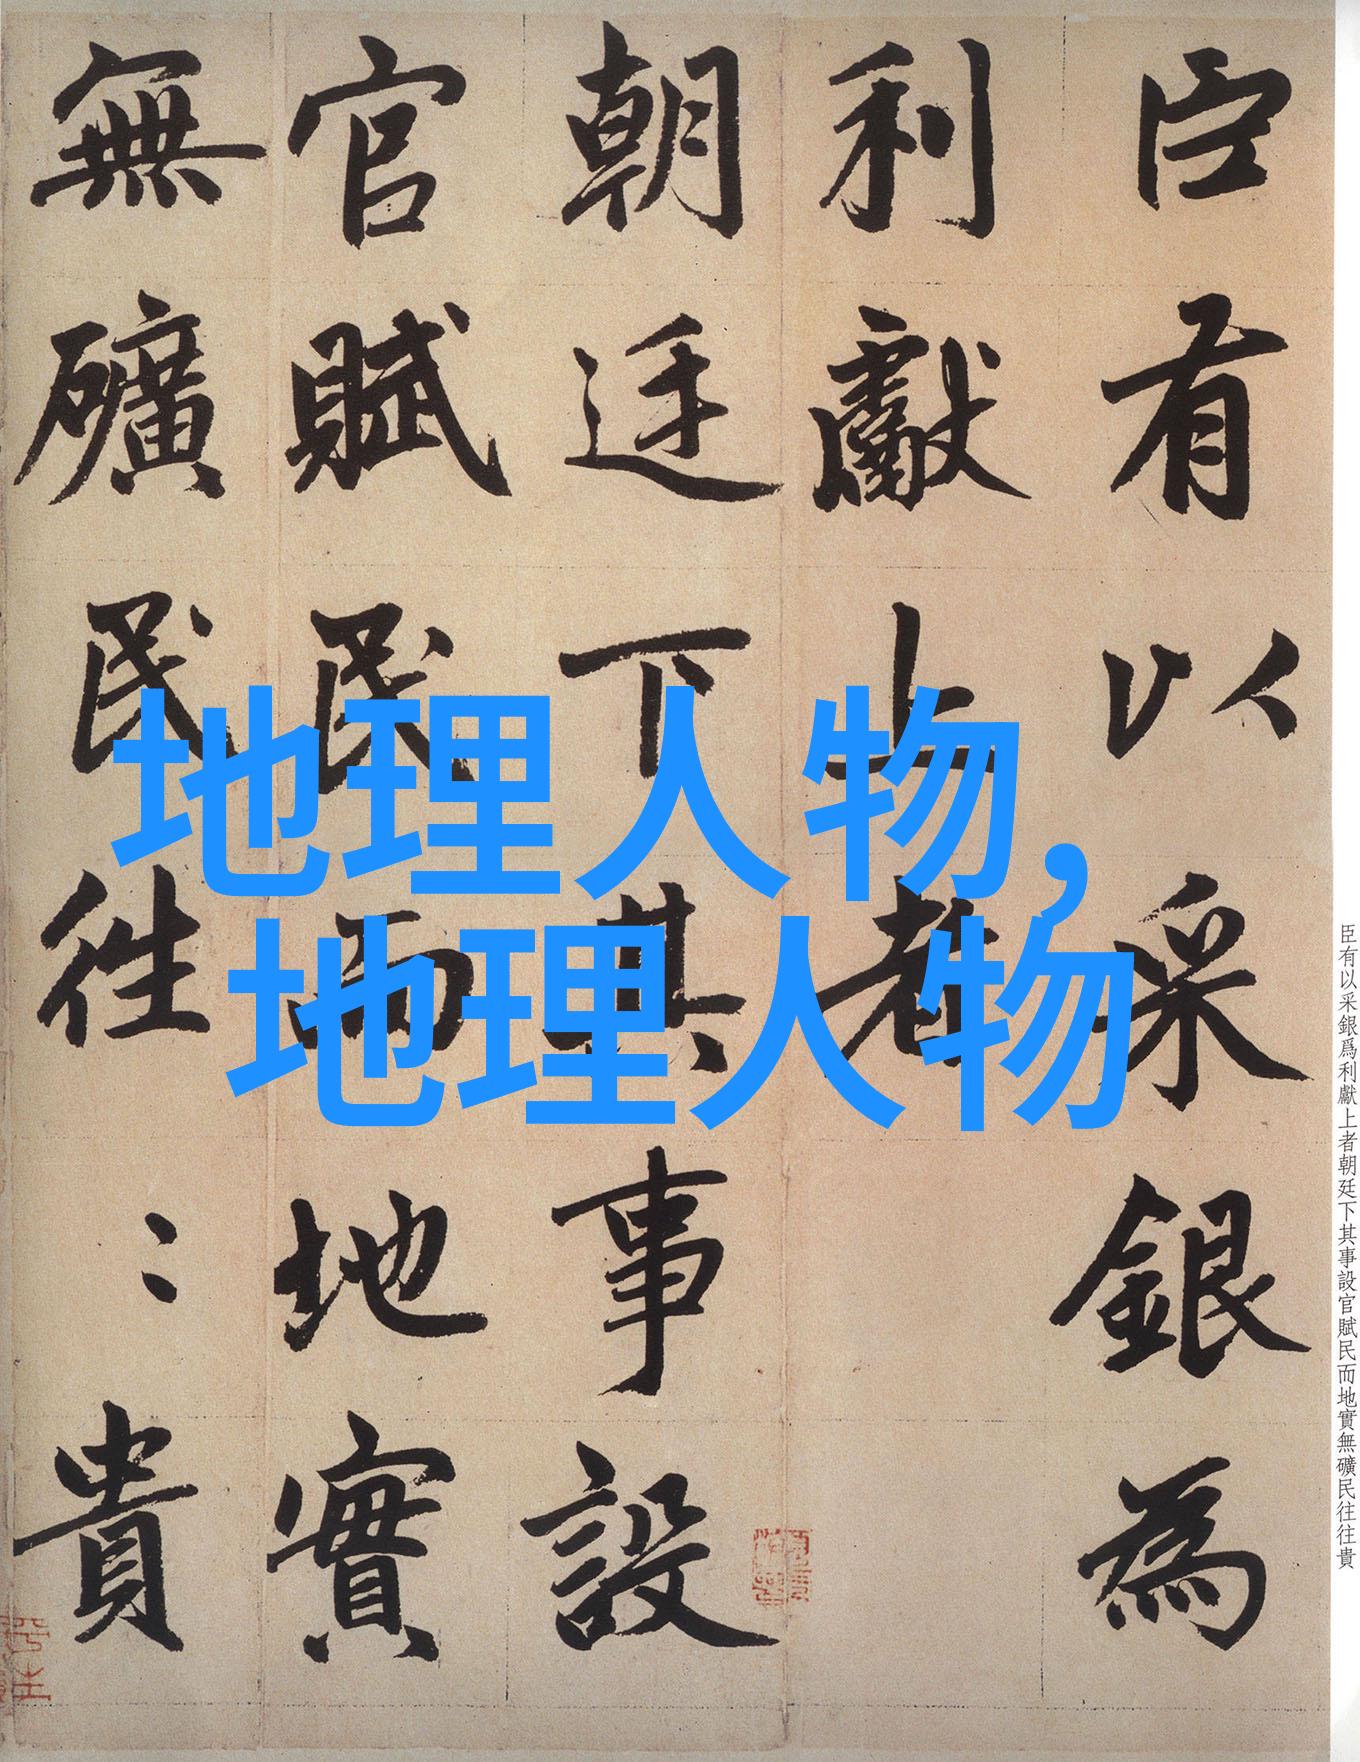 臣有以采銀為
利獻上者
朝廷下其事設
官賦民而地實
無礦民往〻貴
地理人物，
地理人物
臣有以采銀爲利獻上者朝廷下其事設官賦民而地實無礦民往往貴